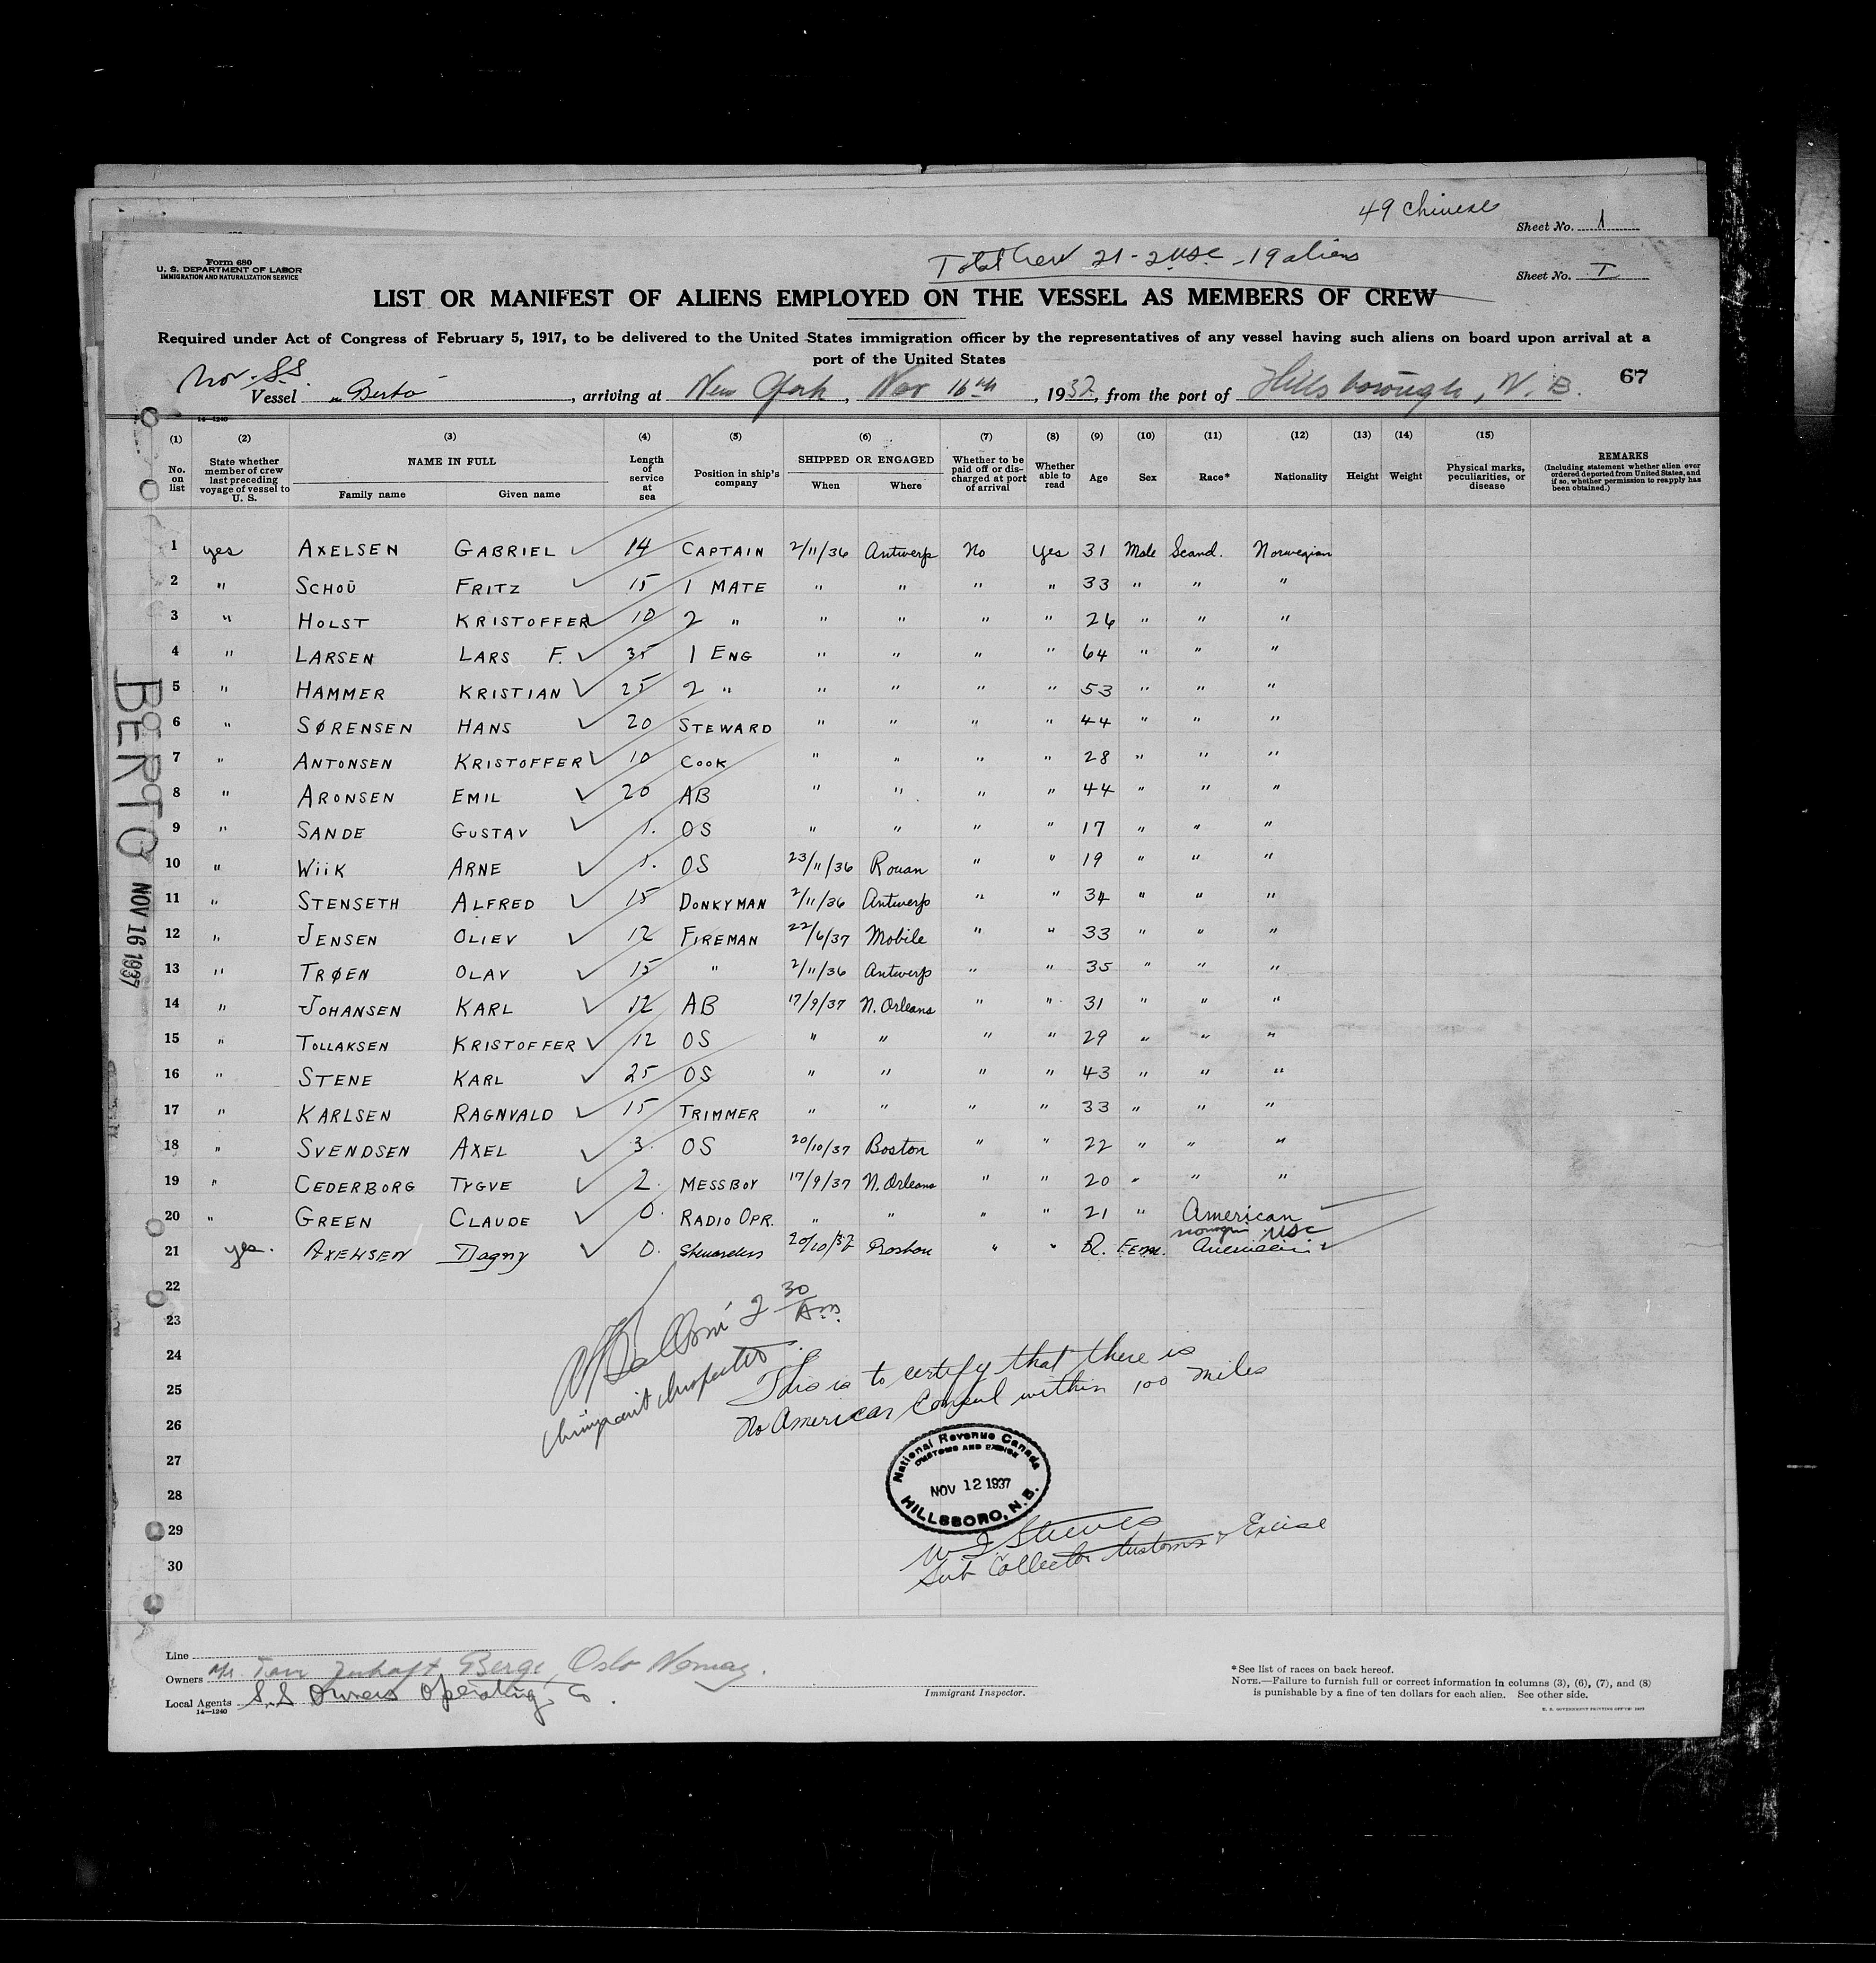 49 Chinese
Sheet No. 1
Form 680
U. S. DEPARTMENT OF LABOR
IMMIGRATION AND NATURALIZATION SERVICE
Total Crew 21 - 2 USC - 19 aliens
Sheet No. I
LIST OR MANIFEST OF ALIENS EMPLOYED ON THE VESSEL AS MEMBERS OF CREW
Required under Act of Congress of February 5, 1917, to be delivered to the United States immigration officer by the representatives of any vessel having such aliens on board upon arrival at a
port of the United States
Nor. S.S.
Vessel "Berto", arriving at New York, Nov 16th, 1937, from the port of Hillsborough, N. B.
67
14—1240
(1) (2) (3) (4) (5) (6) (7) (8) (9) (10) (11) (12) (13) (14) (15)
No. on list
State whether member of crew last preceding voyage of vessel to U. S.
NAME IN FULL
Family name Given name
Length of service at sea
Position in ship's company
SHIPPED OR ENGAGED
When Where
Whether to be paid off or discharged at port of arrival
Whether able to read
Age Sex Race* Nationality Height Weight
Physical marks, peculiarities, or disease
REMARKS
(Including statement whether alien ever ordered deported from United States, and if so, whether permission to reapply has been obtained.)
1 yes AXELSEN GABRIEL ✓ 14 CAPTAIN 2/11/36 Antwerp No Yes 31 Male Scand. Norwegian
2 " SCHOŪ FRITZ ✓ 15 1 MATE " " " " 33 " " "
3 " HOLST KRISTOFFER ✓ 10 2 " " " " " 26 " " "
4 " LARSEN LARS F. ✓ 35 1 ENG " " " " 64 " " "
5 " HAMMER KRISTIAN ✓ 25 2 " " " " " 53 " " "
6 " SØRENSEN HANS ✓ 20 STEWARD " " " " 44 " " "
7 " ANTONSEN KRISTOFFER ✓ 10 COOK " " " " 28 " " "
8 " ARONSEN EMIL ✓ 20 AB " " " " 44 " " "
9 " SANDE GUSTAV ✓ 1. OS " " " " 17 " " "
10 " WiiK ARNE ✓ 1. OS 23/11/36 Rouan " " 19 " " "
11 " STENSETH ALFRED ✓ 15 DONKYMAN 2/11/36 Antwerp " " 34 " " "
12 " JENSEN OLIEV ✓ 12 FIREMAN 22/6/37 Mobile " " 33 " " "
13 " TRØEN OLAV ✓ 15 " 2/11/36 Antwerp " " 35 " " "
14 " JOHANSEN KARL ✓ 12 AB 17/9/37 N. Orleans " " 31 " " "
15 " TOLLAKSEN KRISTOFFER ✓ 12 OS " " " " 29 " " "
16 " STENE KARL ✓ 25 OS " " " " 43 " " "
17 " KARLSEN RAGNVALD ✓ 15 TRIMMER " " " " 33 " " "
18 " SVENDSEN AXEL ✓ 3. OS 20/10/37 Boston " " 22 " " "
19 " CEDERBORG TYGVE ✓ 2. MESSBOY 17/9/37 N. Orleans " " 20 " " "
20 " GREEN CLAUDE ✓ 0. RADIO OPR. " " " " 21 " American
USC
21 yes. AXELSEN Dagny ✓ 0. Stewardess 20/10/37 Boston " " Fem. American ✓
22
23
24
25
26
27
28
29
30
2 30 Am.
Immigrant Inspector
This is to certify that there is
No American Consul within 100 miles
National Revenue Canada
CUSTOMS AND EXCISE
NOV 12 1937
HILLSBORO, N.B.
W J Steeves
Sub Collector Customs & Excise
BERTO
NOV 16 1937
Line
Owners Berge, Oslo Norway.
Local Agents S.S Owners Operating Co.
14—1240
Immigrant Inspector.
*See list of races on back hereof.
NOTE.—Failure to furnish full or correct information in columns (3), (6), (7), and (8)
is punishable by a fine of ten dollars for each alien. See other side.
U. S. GOVERNMENT PRINTING OFFICE